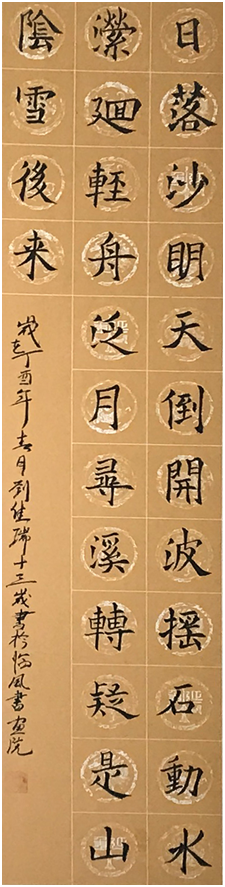 日落沙明天倒開波摇石動水
縈廻輊舟泛月尋溪轉疑是山
陰雪後来
歲在丁酉年春月劉佳瑞十三歲書於临風書画院